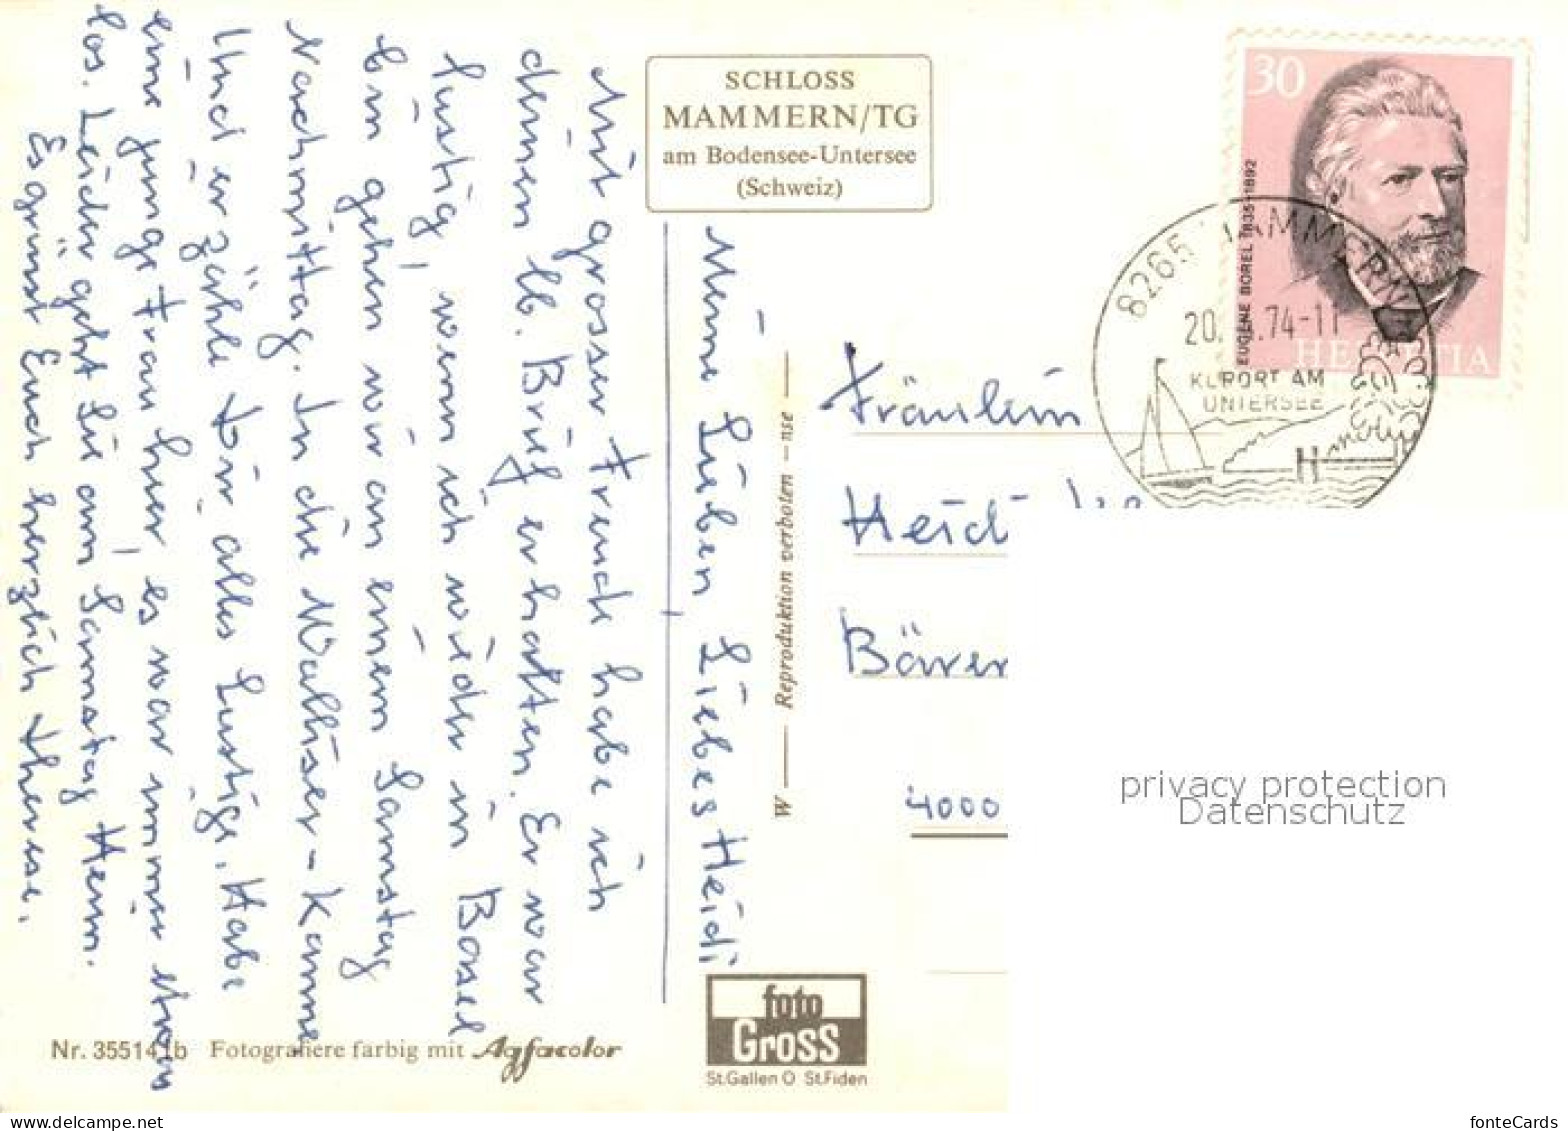 SCHLOSS
MAMMERN/TG
am Bodensee-Untersee
(Schweiz)
30
EUGÈNE BOREL 1835-1892
HELVETIA
8265 MAMMERN
20. .74-11
KURORT AM
UNTERSEE
Meine Lieben Liebes Heidi
Mit grosser Freude habe ich
deinen lb. Brief erhalten. Er war
lustig, wenn ich wieder in Basel
bin gehen wir an einem Samstag
Nachmittag. In die Walliser-Kanne
Und erzähle Dir alles Lustige. Habe
eine junge Frau hier, es war immer etwas
los. Leider geht Sie am Samstag Heim.
Es grüsst Euch herzlich Therese.
Fräulein
Heidi
4000
W — Reproduktion verboten — nse —
privacy protection
Datenschutz
foto
Gross
St.Gallen O St.Fiden
Nr. 355141b Fotografiere farbig mit Agfacolor
fonteCards